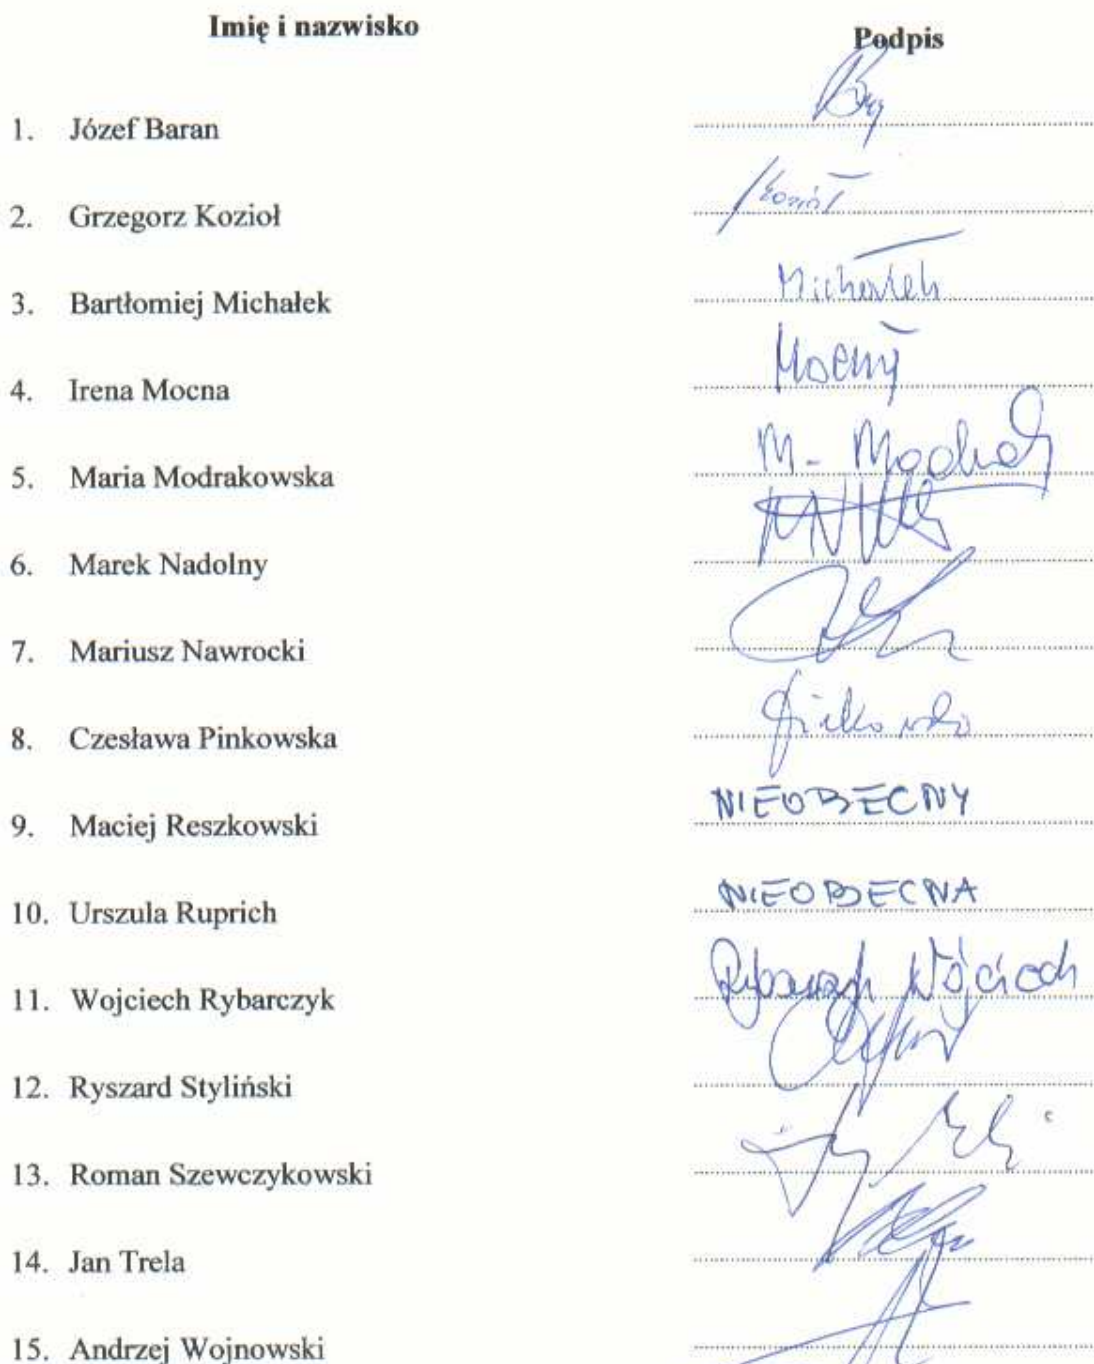 Imię i nazwisko Podpis
1. Józef Baran
2. Grzegorz Kozioł Kozioł
3. Bartłomiej Michałek Michałek
4. Irena Mocna
5. Maria Modrakowska M.
6. Marek Nadolny
7. Mariusz Nawrocki
8. Czesława Pinkowska
9. Maciej Reszkowski NIEOBECNY
10. Urszula Ruprich NIEOBECNA
11. Wojciech Rybarczyk Rybarczyk Wojciech
12. Ryszard Styliński
13. Roman Szewczykowski
14. Jan Trela
15. Andrzej Wojnowski